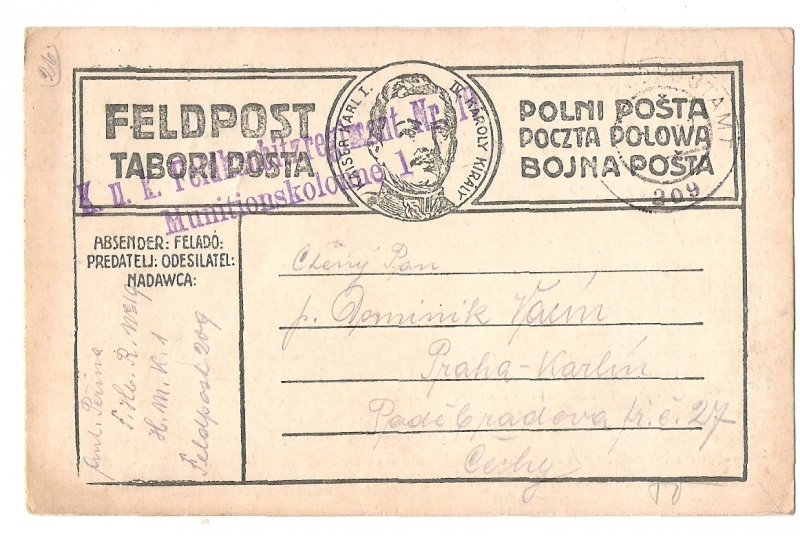 26
FELDPOST
TABORI POSTA
KAISER KARL I. IV. KÁROLY KIRÁLY
POLNI POŠTA
POCZTA POLOWA
BOJNA POŠTA
209
K. u. k. Feldhaubitzregiment Nr.
Munitionskolonne 1
ABSENDER: FELADÓ:
PREDATELJ: ODESILATEL:
NADAWCA:
Peřina
F. Hb. R.
H. M. K. 1
Feldpost 209
Ctěný Pan
p. Dominik Vacín
Praha-Karlín
tř. č. 27
Čechy